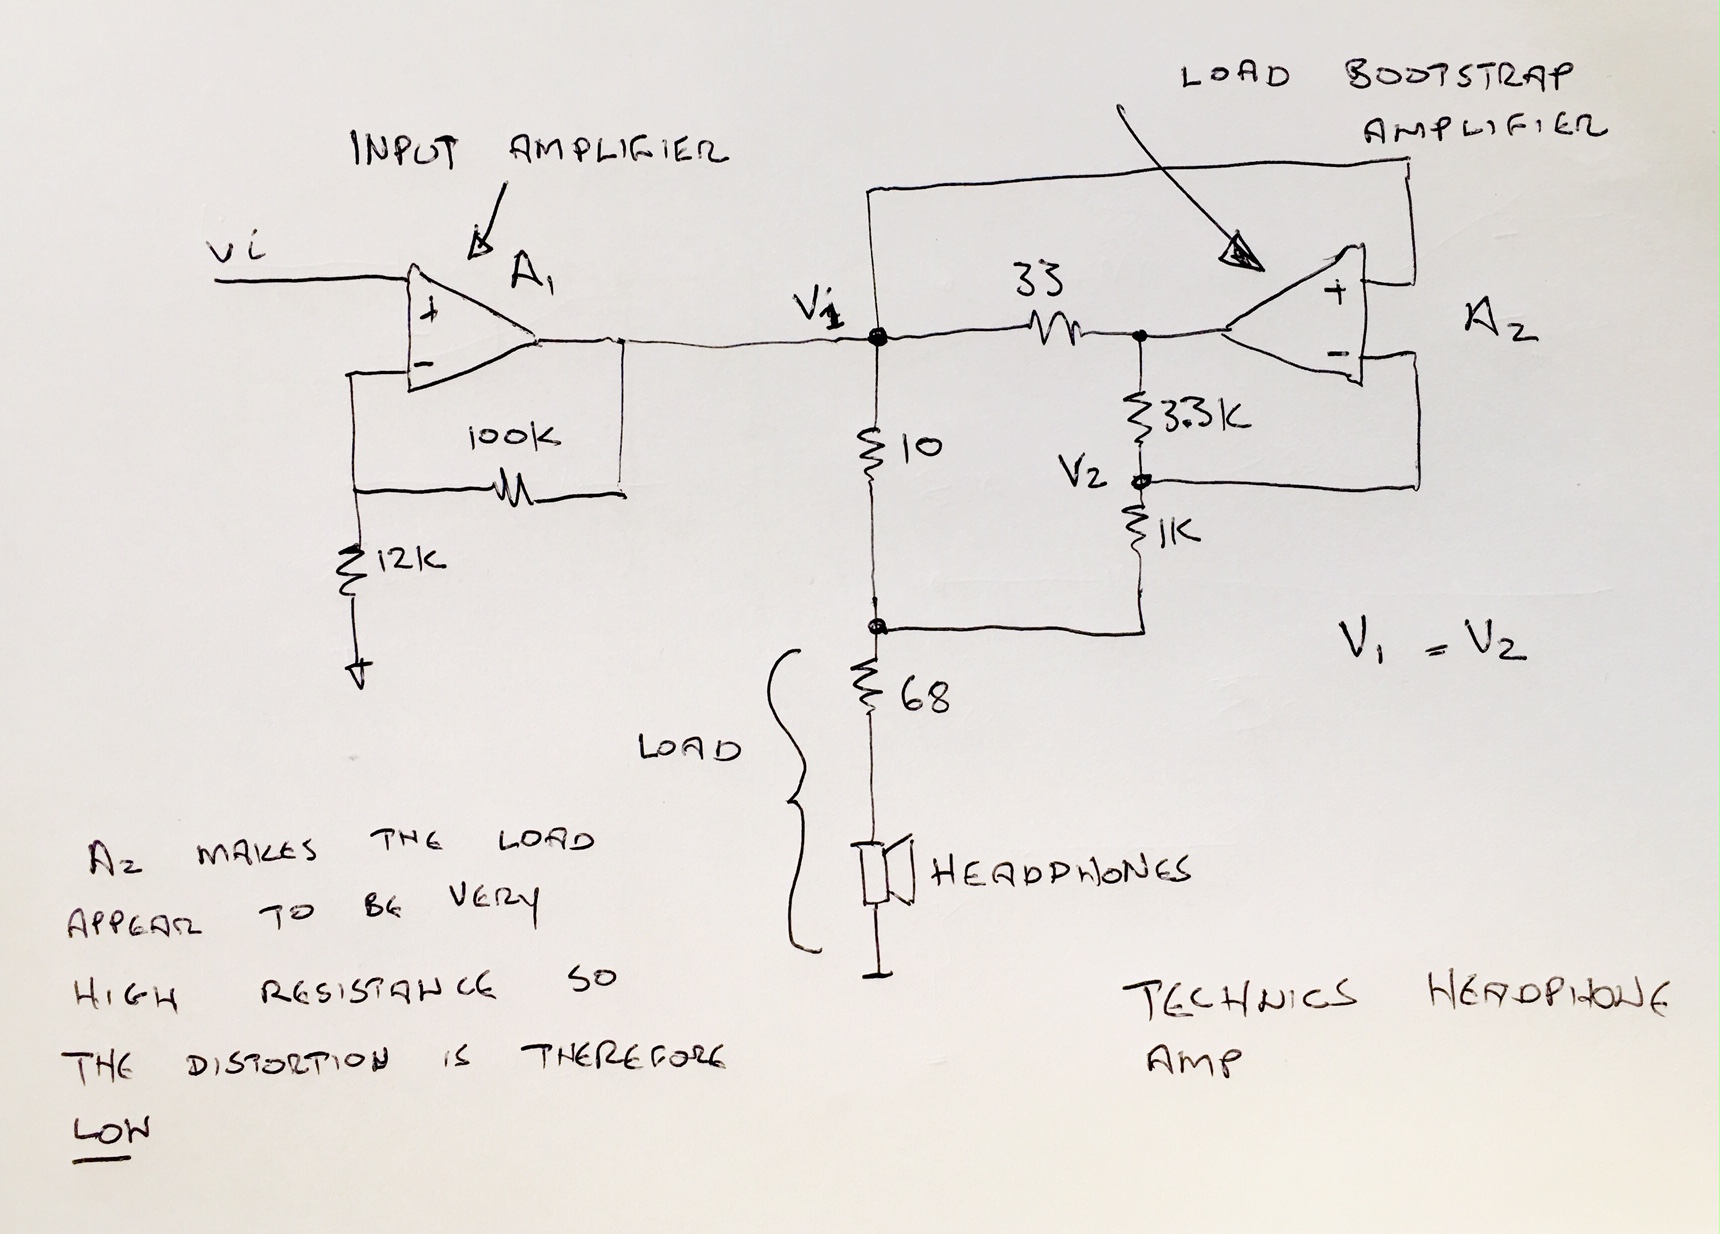 LOAD BOOTSTRAP
AMPLIFIER
INPUT AMPLIFIER
Vi
A1
+
-
100K
12K
V1
33
+
-
A2
3.3K
10
V2
1K
V1 = V2
68
LOAD
HEADPHONES
A2 MAKES THE LOAD
APPEAR TO BE VERY
HIGH RESISTANCE SO
THE DISTORTION IS THEREFORE
LOW
TECHNICS HEADPHONE
AMP